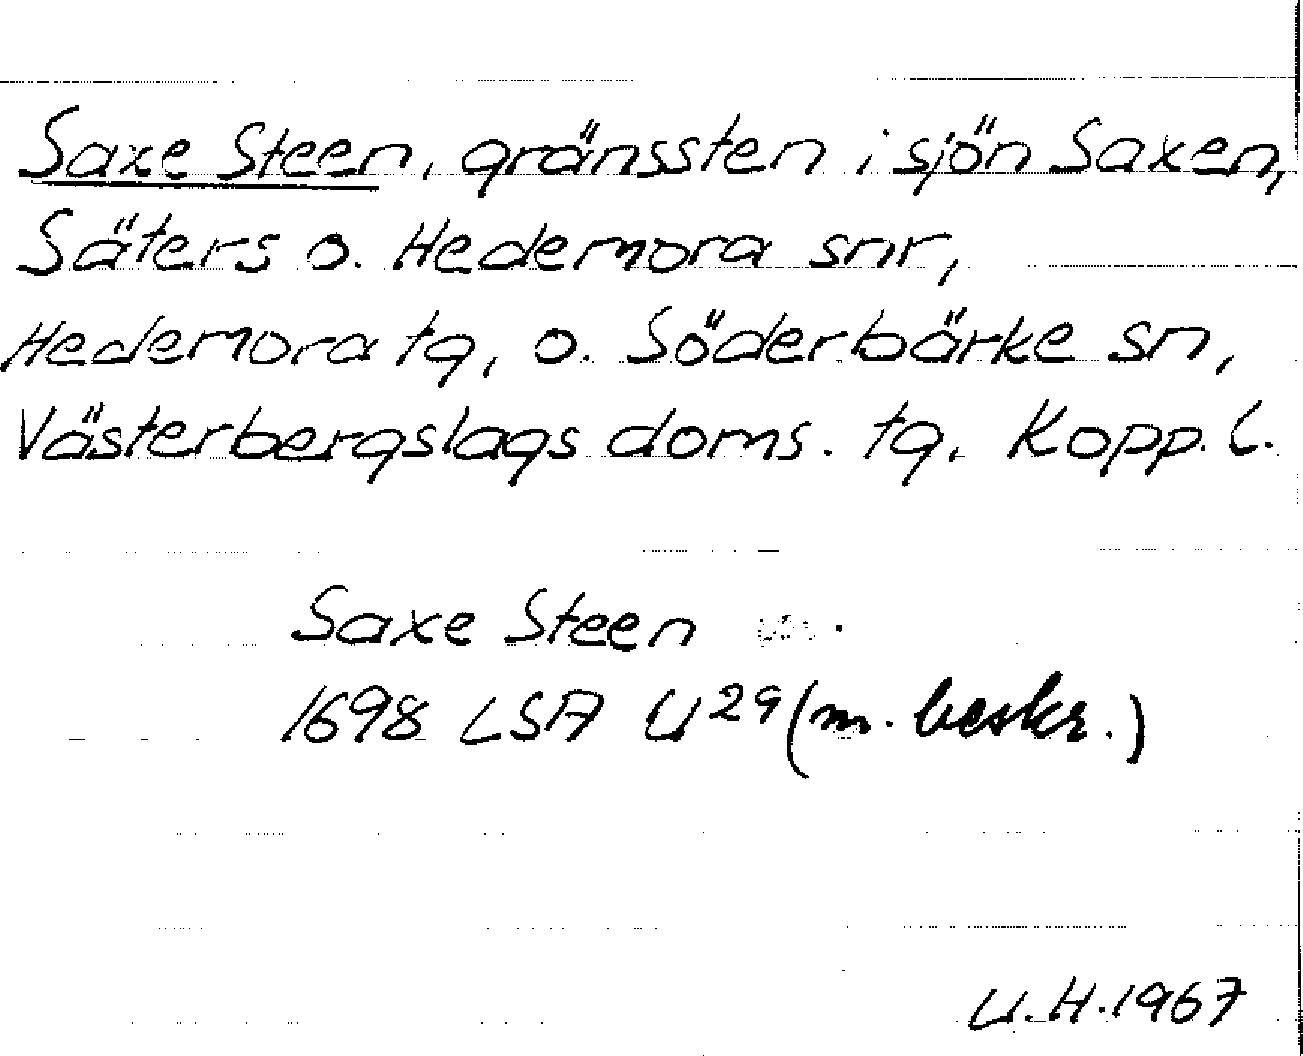 Saxe Steen, gränssten i sjön Saxen,
Säters o. Hedemora snr,
Hedemora tg, o. Söderbärke sn,
Västerbergslags doms. tg. Kopp. l.
Saxe Steen
1698 LSA U 29 (m. beskr.)
U.H.1967